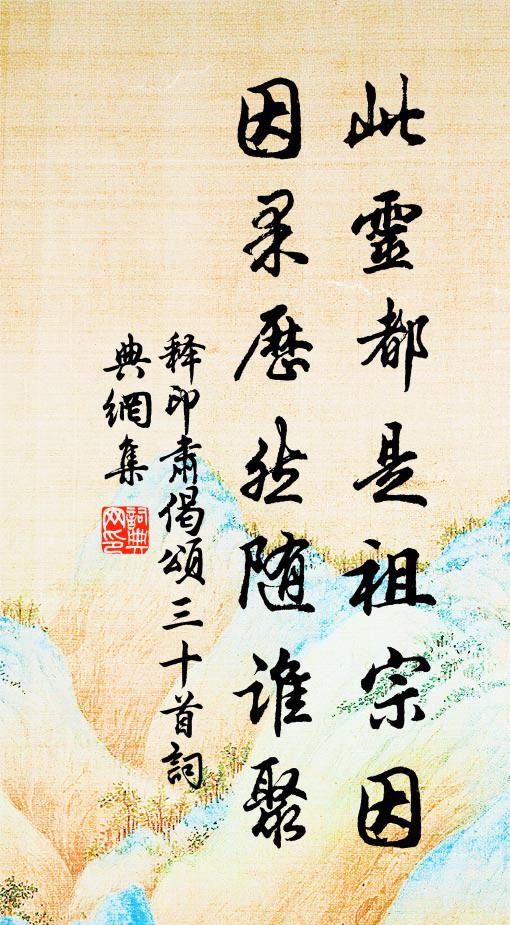 此靈都是祖宗因
因果歷然随誰聚
释印肅偈頌三十首詞
典網集
詞典网印